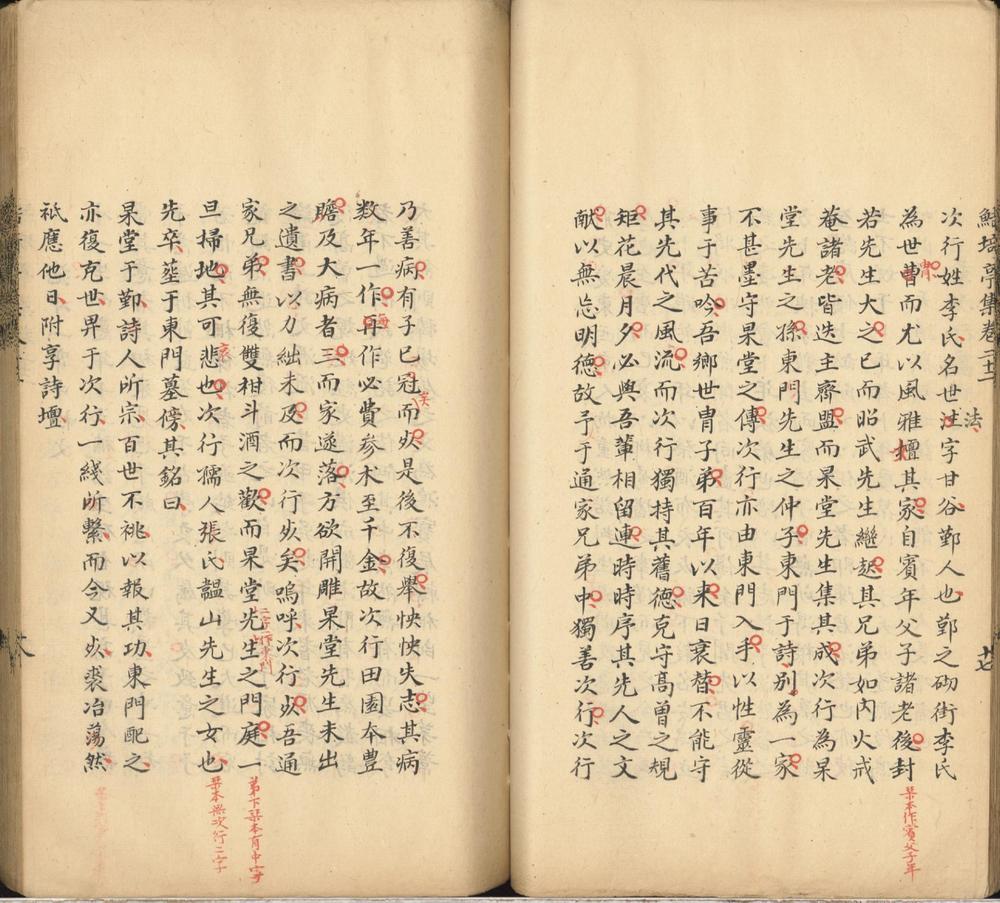 鮚埼亭集卷二十二
十七
次行姓李氏名世法字甘谷鄞人也鄞之砌街李氏
法
為世曹而尤以風雅擅其家自賓年父子諸老後封
冑
栞本作賓父子年
若先生大之已而昭武先生繼起其兄弟如內火戒
菴諸老皆迭主齊盟而杲堂先生集其成次行為杲
堂先生之孫東門先生之仲子東門于詩別為一家
不甚墨守杲堂之傳次行亦由東門入手以性靈從
事于苦吟吾鄉世冑子弟百年以來日衰替不能守
其先代之風流而次行獨持其舊德克守高曾之規
矩花晨月夕必與吾輩相留連時時序其先人之文
獻以無忘明德故予于通家兄弟中獨善次行次行
乃善病有子已冠而夭是後不復舉怏怏失志其病
笑
數年一作再作必費參朮至千金故次行田園本豊
每
贍及大病者三而家遂落方欲開雕杲堂先生未出
之遺書以力絀未及而次行夭矣嗚呼次行夭吾通
家兄弟無復雙柑斗酒之歡而杲堂先生之門庭一
弟下栞本有中字
旦掃地其可悲也次行孺人張氏韞山先生之女也
哀
栞本無次行二字
先卒葬于東門墓傍其銘曰
杲堂于鄞詩人所宗百世不祧以報其功東門配之
亦復克世畀于次行一綫所繫而今又夭裘冶蕩然
祇應他日附享詩壇